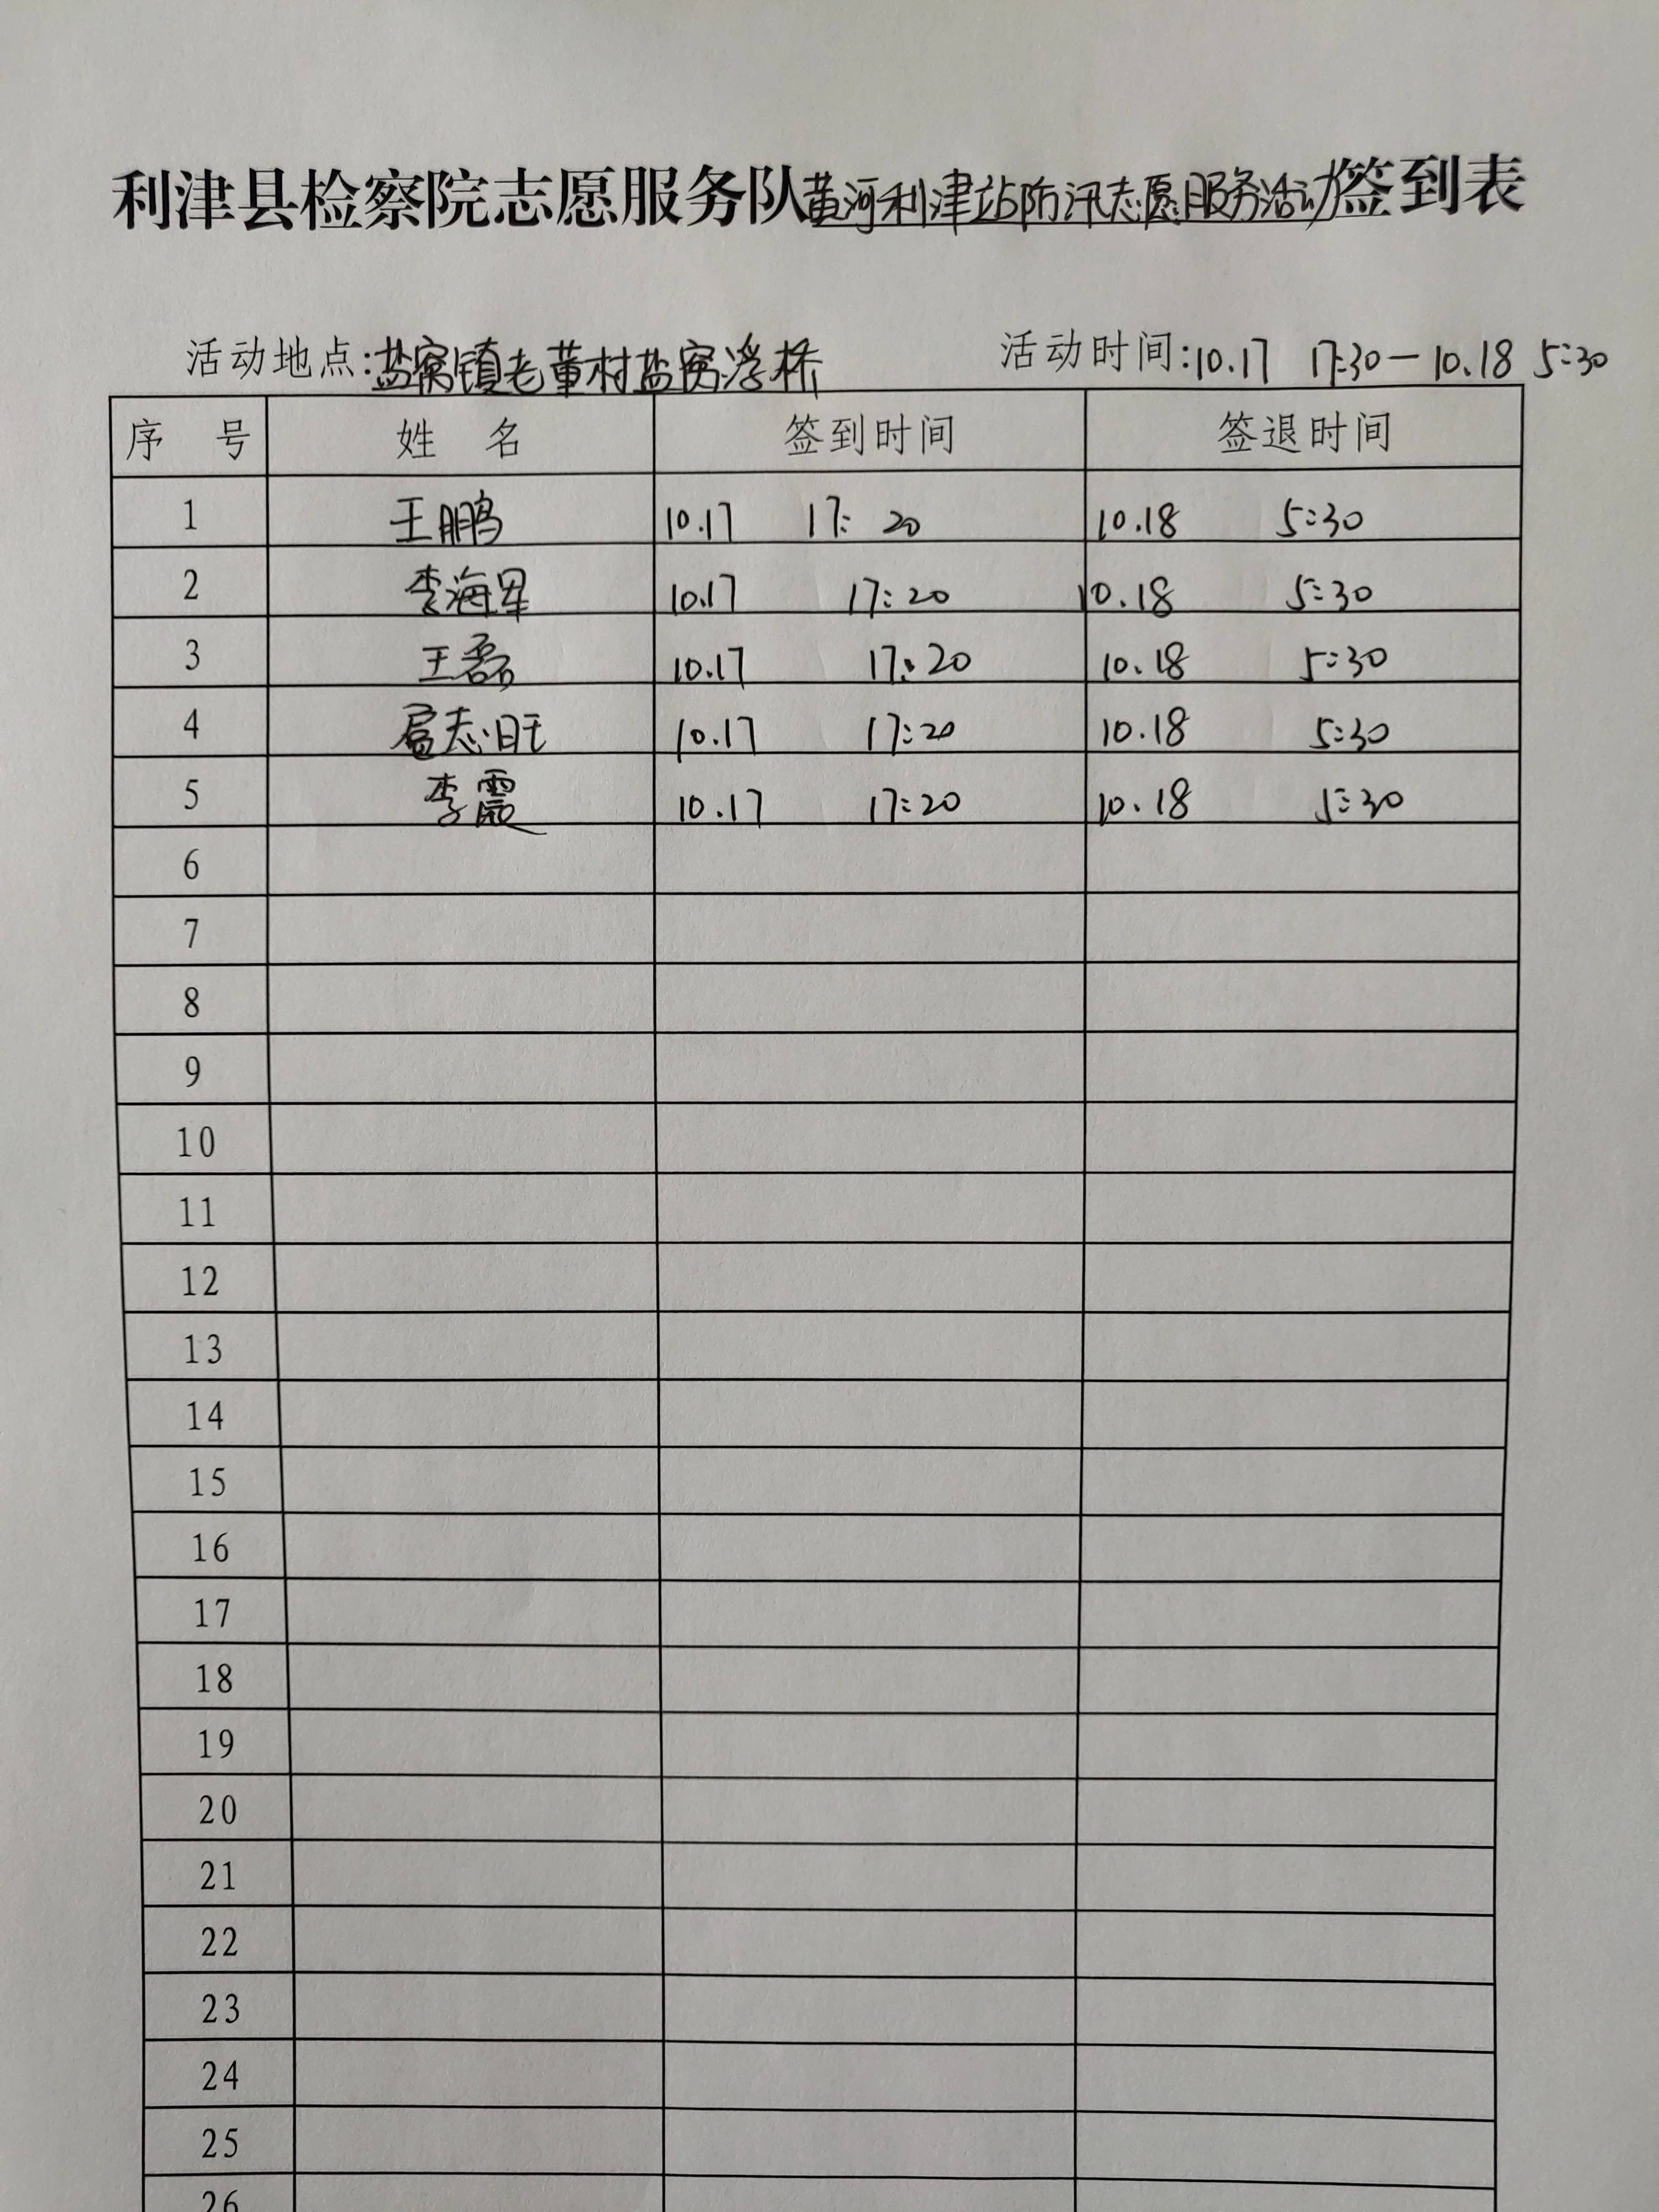 利津县检察院志愿服务队黄河利津站防汛志愿服务活动签到表
活动地点:盐窝镇老董村盐窝浮桥 活动时间:10.17 17:30—10.18 5:30
序 号 姓 名 签到时间 签退时间
1 王鹏 10.17 17:20 10.18 5:30
2 李海军 10.17 17:20 10.18 5:30
3 王磊 10.17 17:20 10.18 5:30
4 扈志旺 10.17 17:20 10.18 5:30
5 李霞 10.17 17:20 10.18 5:30
6
7
8
9
10
11
12
13
14
15
16
17
18
19
20
21
22
23
24
25
26